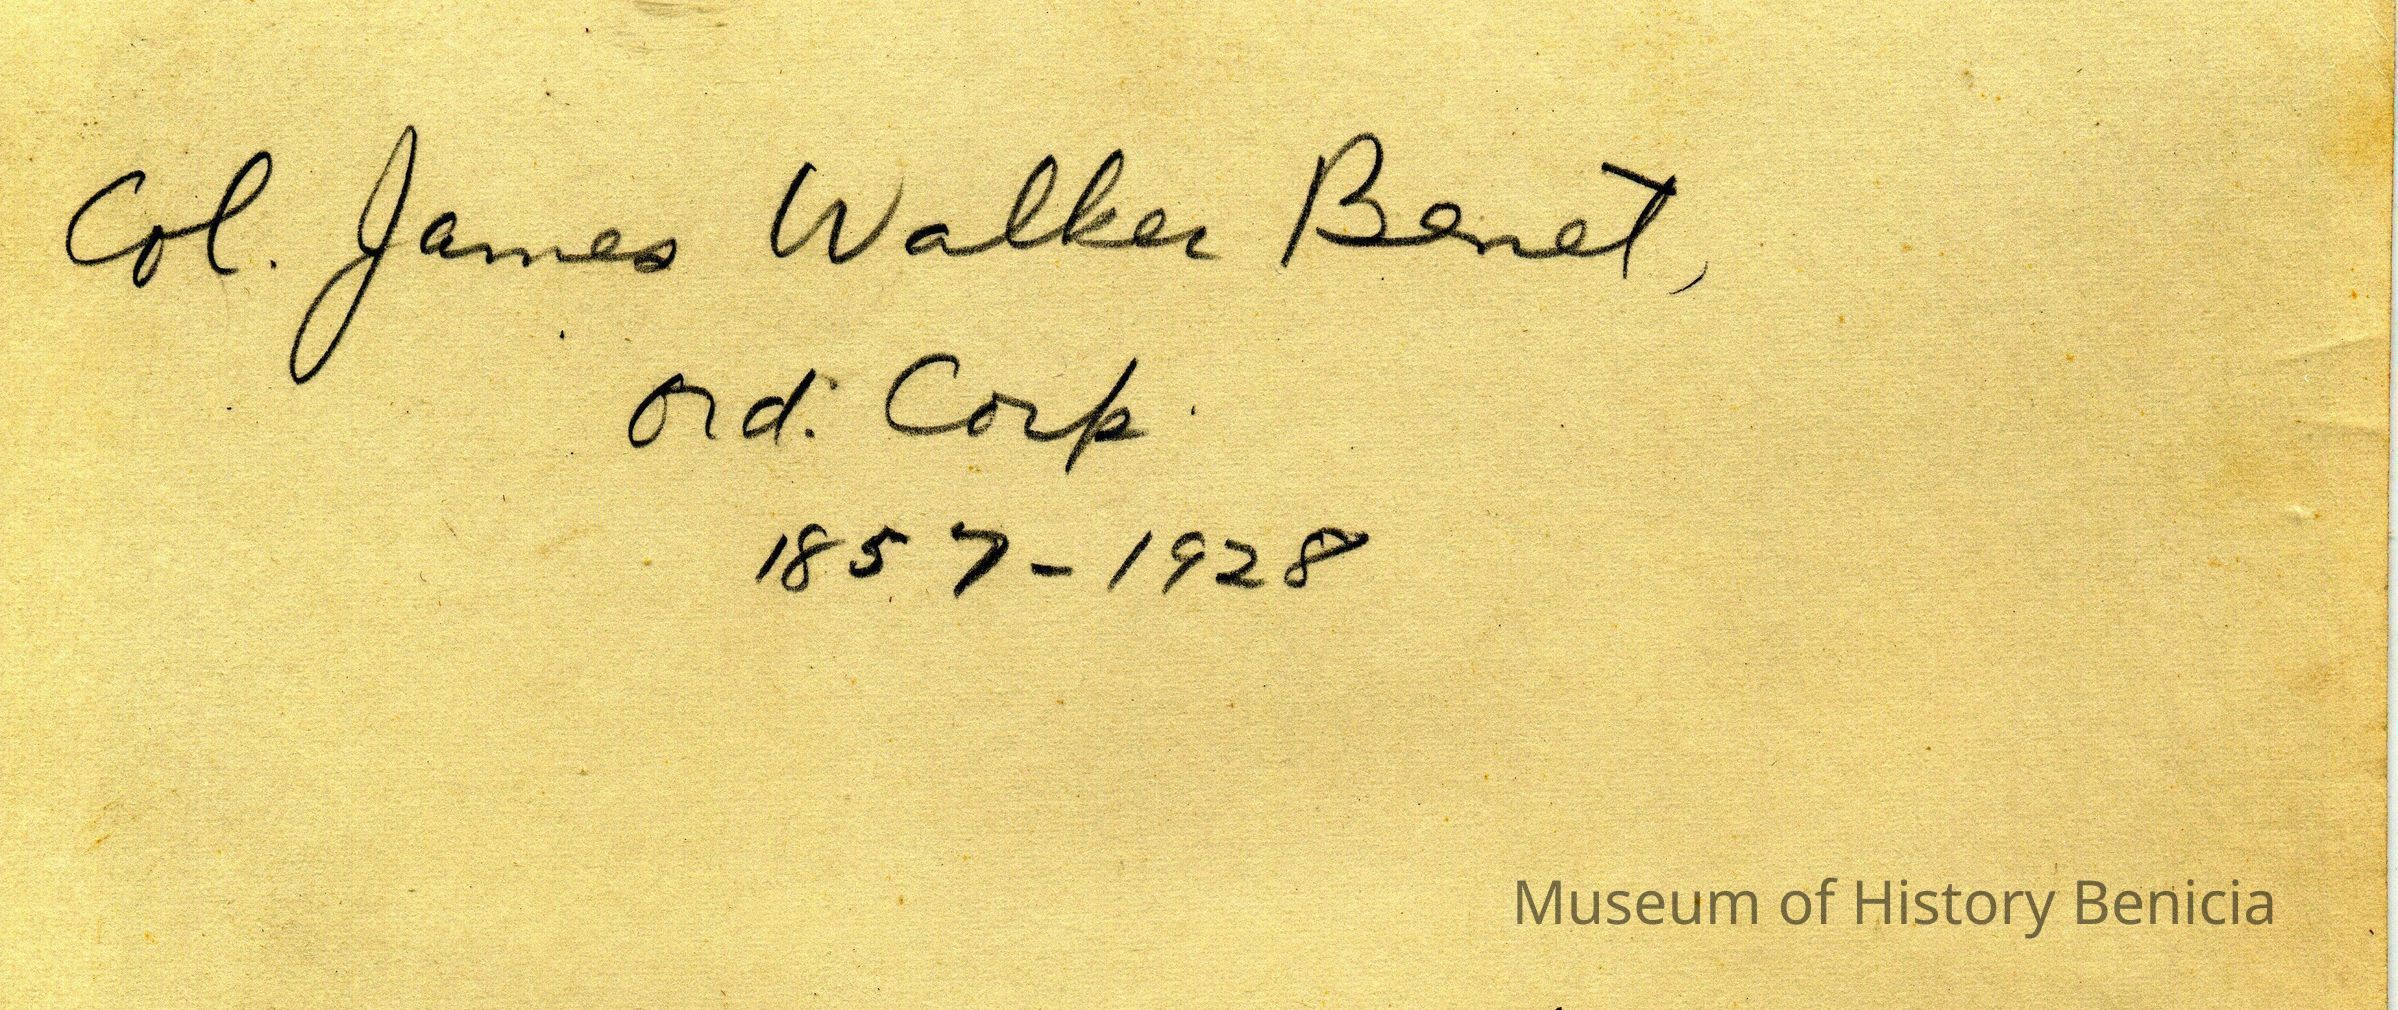 Col. James Walker Benet,
Ord. Corp.
1857-1928
Museum of History Benicia